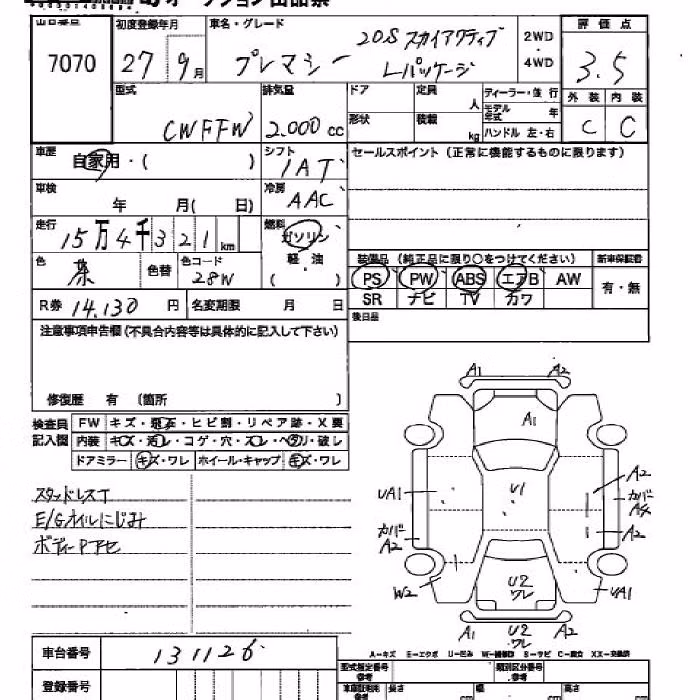 オークション出品票
出品番号 初度登録年月 車名・グレード 評価点
7070 27 9月 プレマシー 20S スカイアクティブ Lパッケージ 2WD・4WD 3.5
外装 内装
C C
型式 排気量 ドア 定員 人 ディーラー・並行
CWFFW 2.000cc 形状 積載 kg モデル年式 年
ハンドル 左・右
車歴 自家用・( ) シフト 1AT セールスポイント(正常に機能するものに限ります)
車検 年 月( 日) 冷房 AAC
走行 15万4千321km 燃料 ガソリン
軽・油
( )
色 茶 色替 色コード 28W
装備品(純正品に限り○をつけてください) 新車保証書
PS PW ABS エアB AW 有・無
SR ナビ TV カワ
R券 14,130円 名変期限 月 日
後日品
注意事項申告欄(不具合内容等は具体的に記入して下さい)
修復歴 有 (箇所 )
検査員記入欄 FW キズ・飛石・ヒビ割・リペア跡・X要
内装 キズ・汚レ・コゲ・穴・スレ・ヘタリ・破レ
ドアミラー キズ・ワレ ホイール・キャップ キズ・ワレ
スタッドレスT
E/Gオイルにじみ
ボディーPアセ
A1 A2
A1
UA1 U1 A2
カバー
カバー A2 A2
W2 U2 ワレ UA1
A1 U2 ワレ A2
A-キズ E-エクボ U-凹み W-補修跡 S-サビ C-腐食 XX-交換済
車台番号 131126
登録番号
型式指定番号 参考 類別区分番号 参考
長さ cm 幅 cm 高さ cm